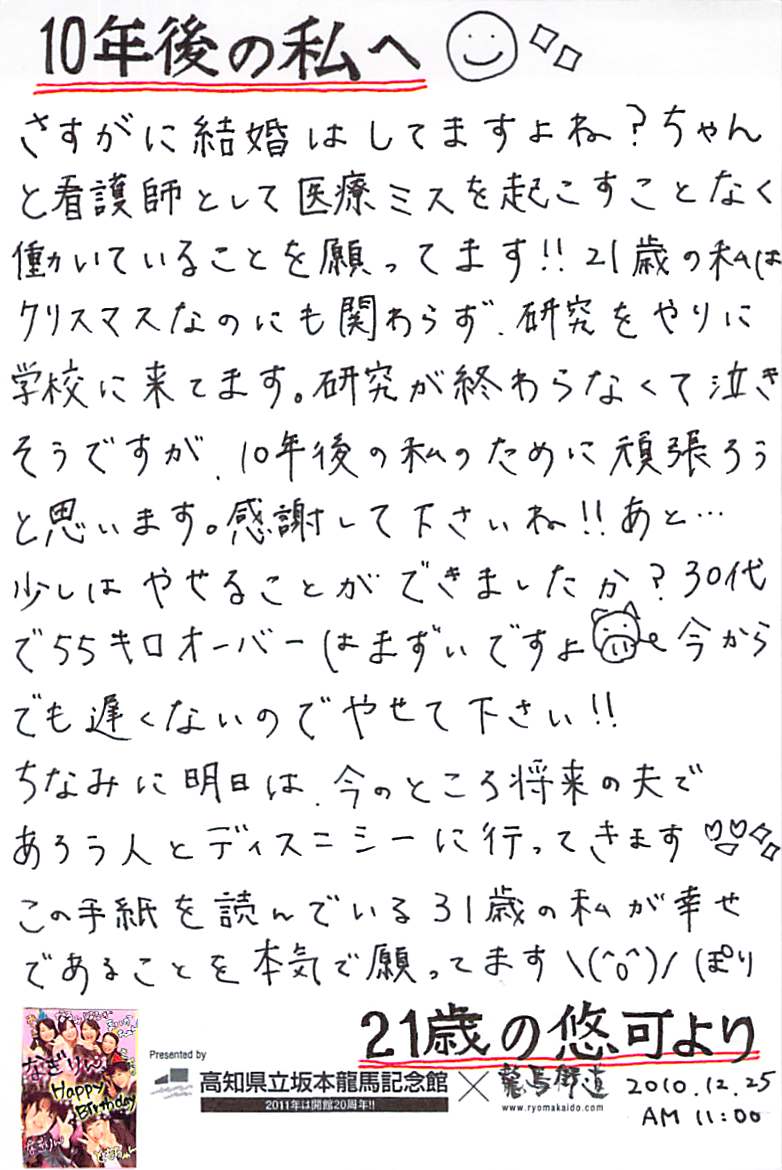 10年後の私へ
さすがに結婚はしてますよね?ちゃん
と看護師として医療ミスを起こすことなく
働いていることを願ってます!!21歳の私は
クリスマスなのにも関わらず、研究をやりに
学校に来てます。研究が終わらなくて泣き
そうですが、10年後の私のために頑張ろう
と思います。感謝して下さいね!!あと…
少しはやせることができましたか?30代
で55キロオーバーはまずいですよ 今から
でも遅くないのでやせて下さい!!
ちなみに明日は、今のところ将来の夫で
あろう人とディズニシーに行ってきます
この手紙を読んでいる31歳の私が幸せ
であることを本気で願ってます\(^o^)/(ぽり
21歳の悠可より
なぎりん
Happy
Birthday
なぎりん
Presented by
高知県立坂本龍馬記念館 × 龍馬街道
2011年は開館20周年!!
www.ryomakaido.com
2010.12.25
AM 11:00